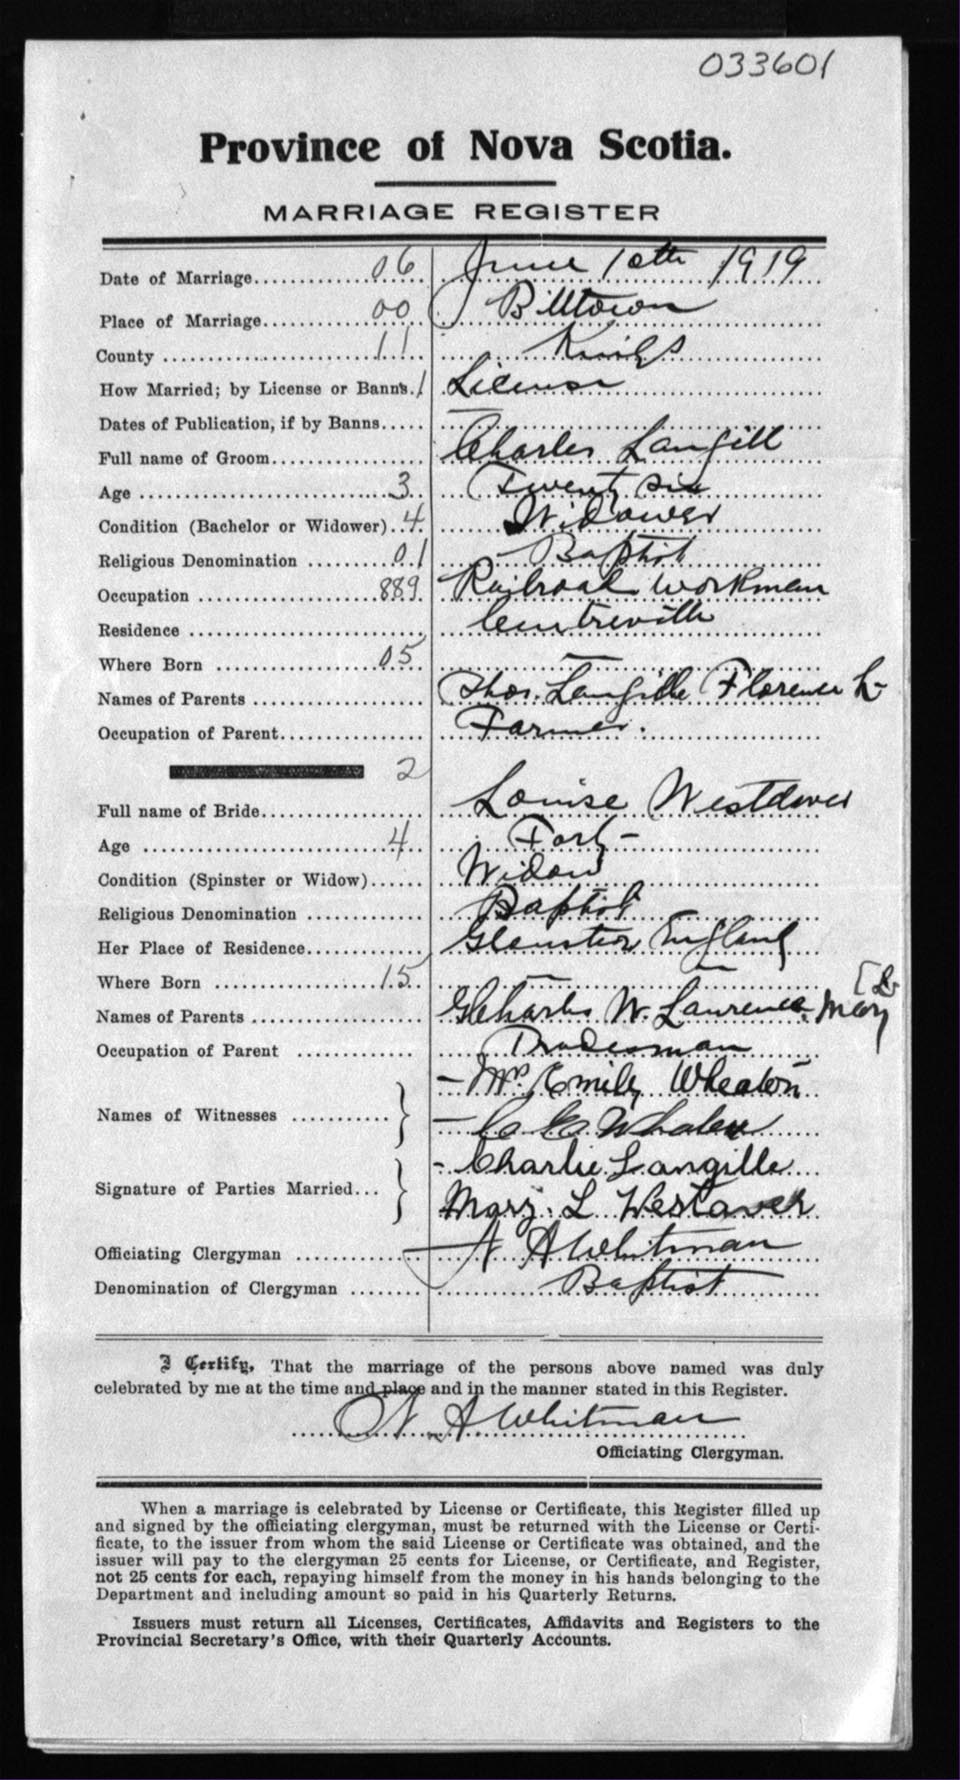 033601
Province of Nova Scotia.
MARRIAGE REGISTER
Date of Marriage 06 June 10th 1919
Place of Marriage 00 Billtown
County 11 Kings
How Married; by License or Banns. 1 License
Dates of Publication, if by Banns
Full name of Groom Charles Langill
Age 3 Twenty six
Condition (Bachelor or Widower) 4 Widower
Religious Denomination 01 Baptist
Occupation 889 Railroad workman
Residence Centreville
Where Born 05
Names of Parents Thos. Langille Florence L
Occupation of Parent Farmer.
2
Full name of Bride Louise Westaver
Age 4 Forty
Condition (Spinster or Widow) Widow
Religious Denomination Baptist
Her Place of Residence England
Where Born 15
Names of Parents Charles W. Laurence. Mary
Occupation of Parent Tradesman
Names of Witnesses } Mrs. Emily Wheaton
Signature of Parties Married... } Charlie Langille
Mary. L Westaver
Officiating Clergyman A Whitman
Denomination of Clergyman Baptist
I Certify, That the marriage of the persons above named was duly
celebrated by me at the time and place and in the manner stated in this Register.
A. Whitman
Officiating Clergyman.
When a marriage is celebrated by License or Certificate, this Register filled up
and signed by the officiating clergyman, must be returned with the License or Certi-
ficate, to the issuer from whom the said License or Certificate was obtained, and the
issuer will pay to the clergyman 25 cents for License, or Certificate, and Register,
not 25 cents for each, repaying himself from the money in his hands belonging to the
Department and including amount so paid in his Quarterly Returns.
Issuers must return all Licenses, Certificates, Affidavits and Registers to the
Provincial Secretary's Office, with their Quarterly Accounts.